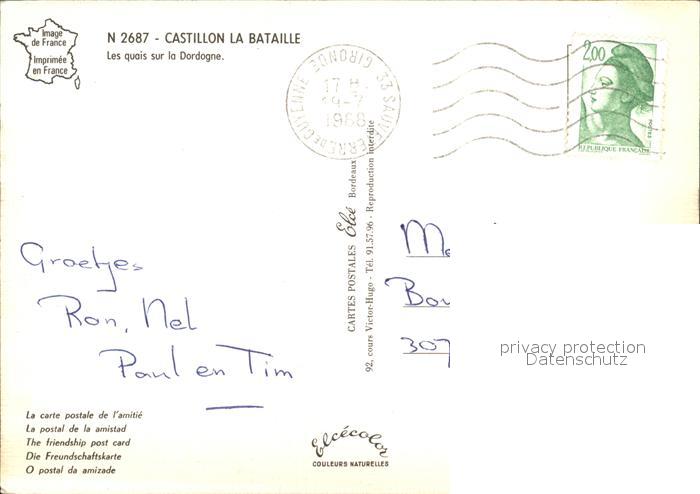 Image
de France
Imprimée
en France
N 2687 - CASTILLON LA BATAILLE
Les quais sur la Dordogne.
33 SAUVETERRE DE GUYENNE GIRONDE
17 H
19-7
1988
2,00
POSTES
REPUBLIQUE FRANÇAISE
CARTES POSTALES Elcé Bordeaux
92, cours Victor-Hugo - Tél. 91.57.96 - Reproduction interdite
Groetjes
Ron, Nel
Paul en Tim
307
privacy protection
Datenschutz
La carte postale de l'amitié
La postal de la amistad
The friendship post card
Die Freundschaftskarte
O postal da amizade
Elcécolor
COULEURS NATURELLES